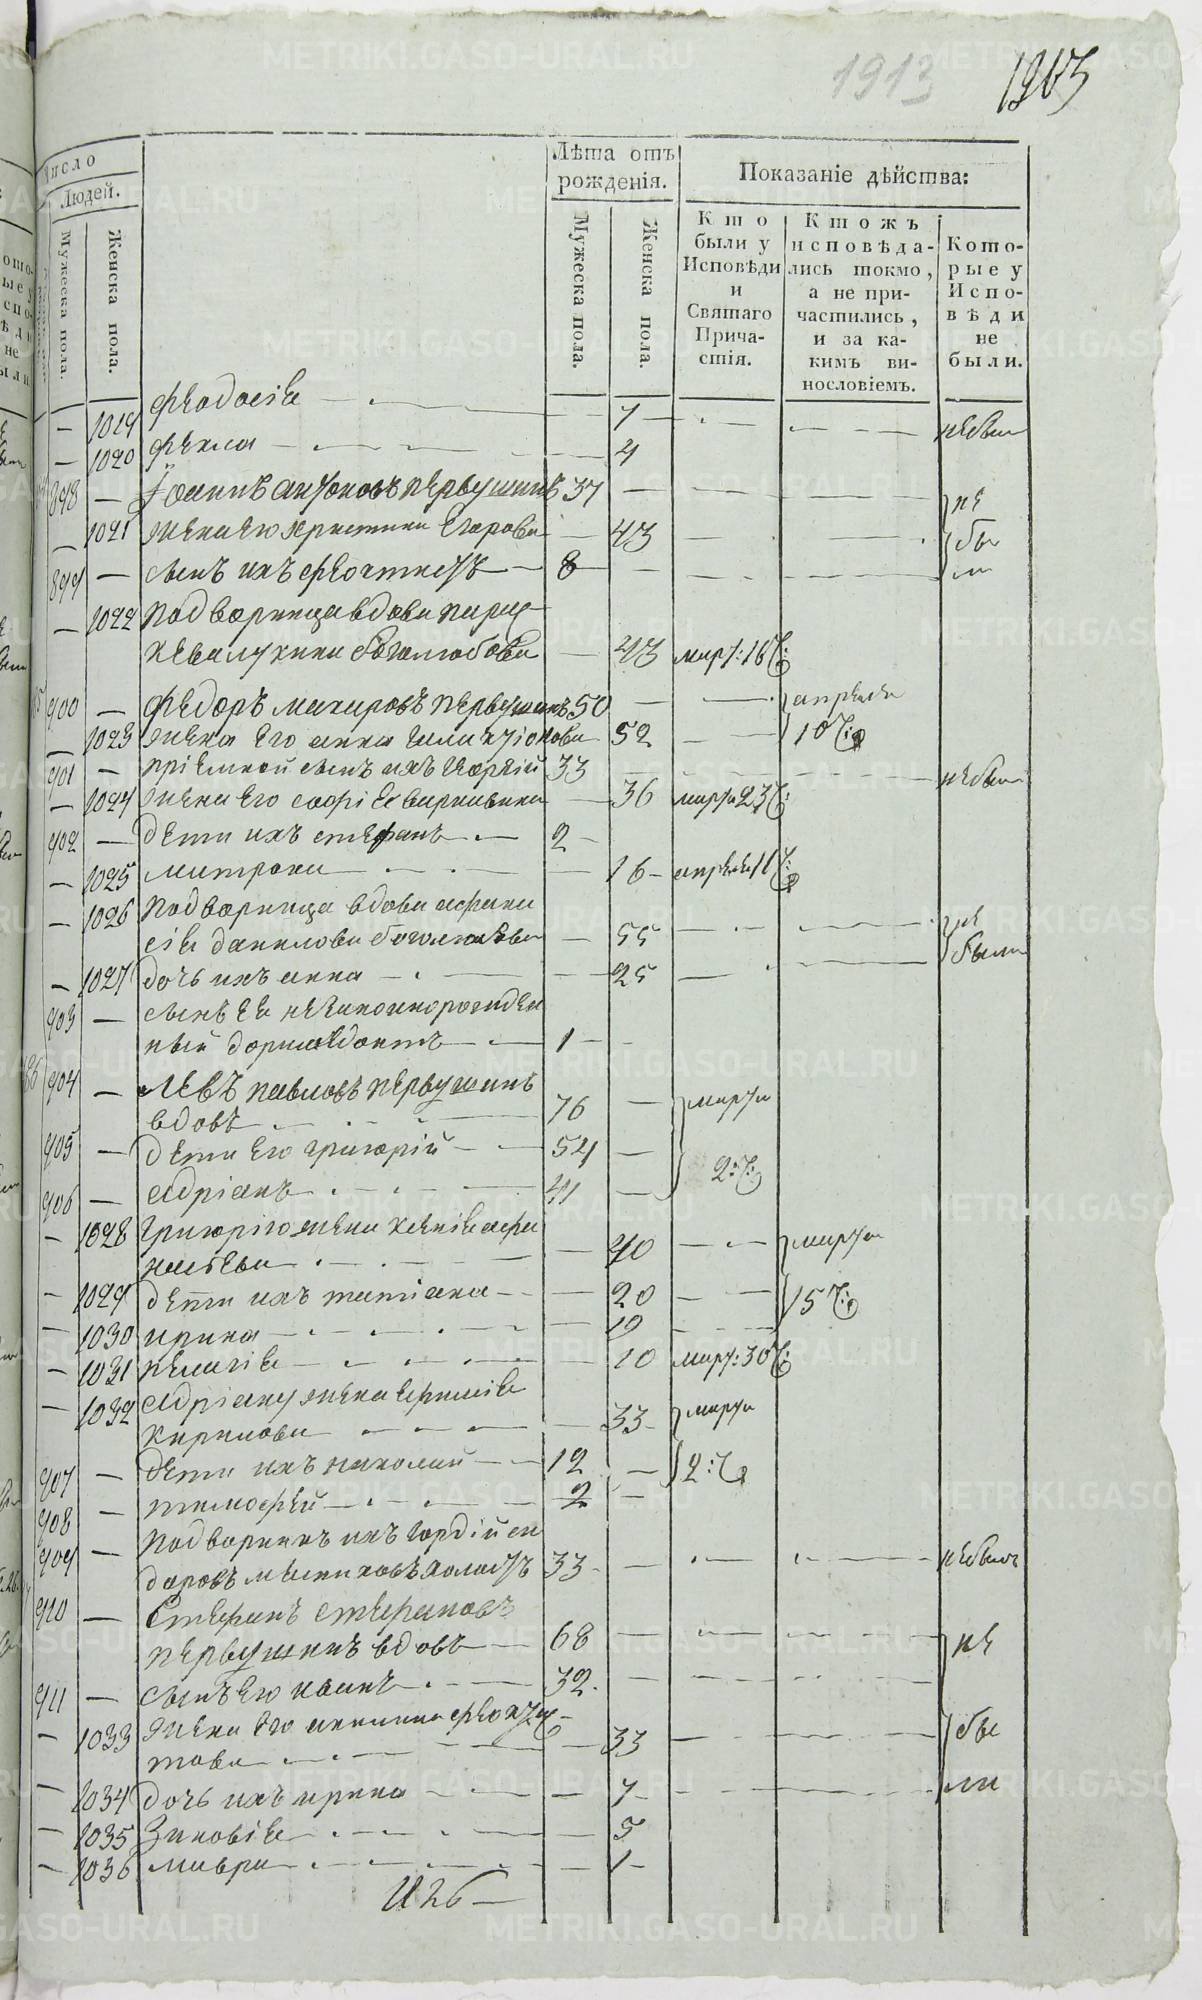 1913
Число
Людей.
Мужеска пола.
Женска пола.
Лѣта отъ рожденія.
Мужеска пола.
Женска пола.
Показаніе дѣйства:
Кто были у Исповѣди и Святаго Причастія.
Ктожъ исповѣдались токмо, а не причастились, и за какимъ винословіемъ.
Которые у Исповѣди не были.
— 1019 Феодосіе — 7 небыли
— 1020 Фекла — 4
898 — Іоаннъ антоновъ первушинъ 37 — не
— 1021 жена его христина Егорова — 43 бы
899 — сынъ ихъ феоктистъ — 8 ли
— 1022 подворница вдова парас
кева лукина боголюбова — 43
900 — Федоръ макаровъ первушинъ 50 — апреля
— 1023 жена его анна 52 10
901 — пріемной сынъ ихъ 33 небылъ
— 1024 жена его софіе — 36 марта 23
902 — дети ихъ стефанъ — 2 —
— 1025 матрона — 16 — апреля 11
— 1026 подворница вдова афана
сіе данилова — 55 не
— 1027 дочь ихъ анна — 25 были
903 — сынъ ея незаконнорожден
ный доримедонтъ — 1 —
904 — Левъ павловъ первушинъ
вдовъ 76 — марта
905 — дети его григорій — 54 —
906 — Адріанъ — 41 — 2
— 1028 григорію жена ксеніе афа
насьева — 40 марта
— 1029 дети ихъ татіана — 20 15
— 1030 ирина — 19
— 1031 пелагіе — 10 март: 30
— 1032 Адріану жена
кирилова — 33 — марта
907 — дети ихъ николай — 12 — 2
908 — тимофей — 2 —
909 — подворникъ ихъ гордій си
доровъ 33 — небылъ
910 — Стефанъ стефановъ
первушинъ вдовъ — 68 — не
911 — сынъ его иванъ — 32.
— 1033 жена его акилина феокти
това — 33 бы
— 1034 дочь ихъ ирина — 7 — ли
— 1035 Зиновіе — 5
— 1036 мавра — 1 —
METRIKI.GASO-URAL.RU